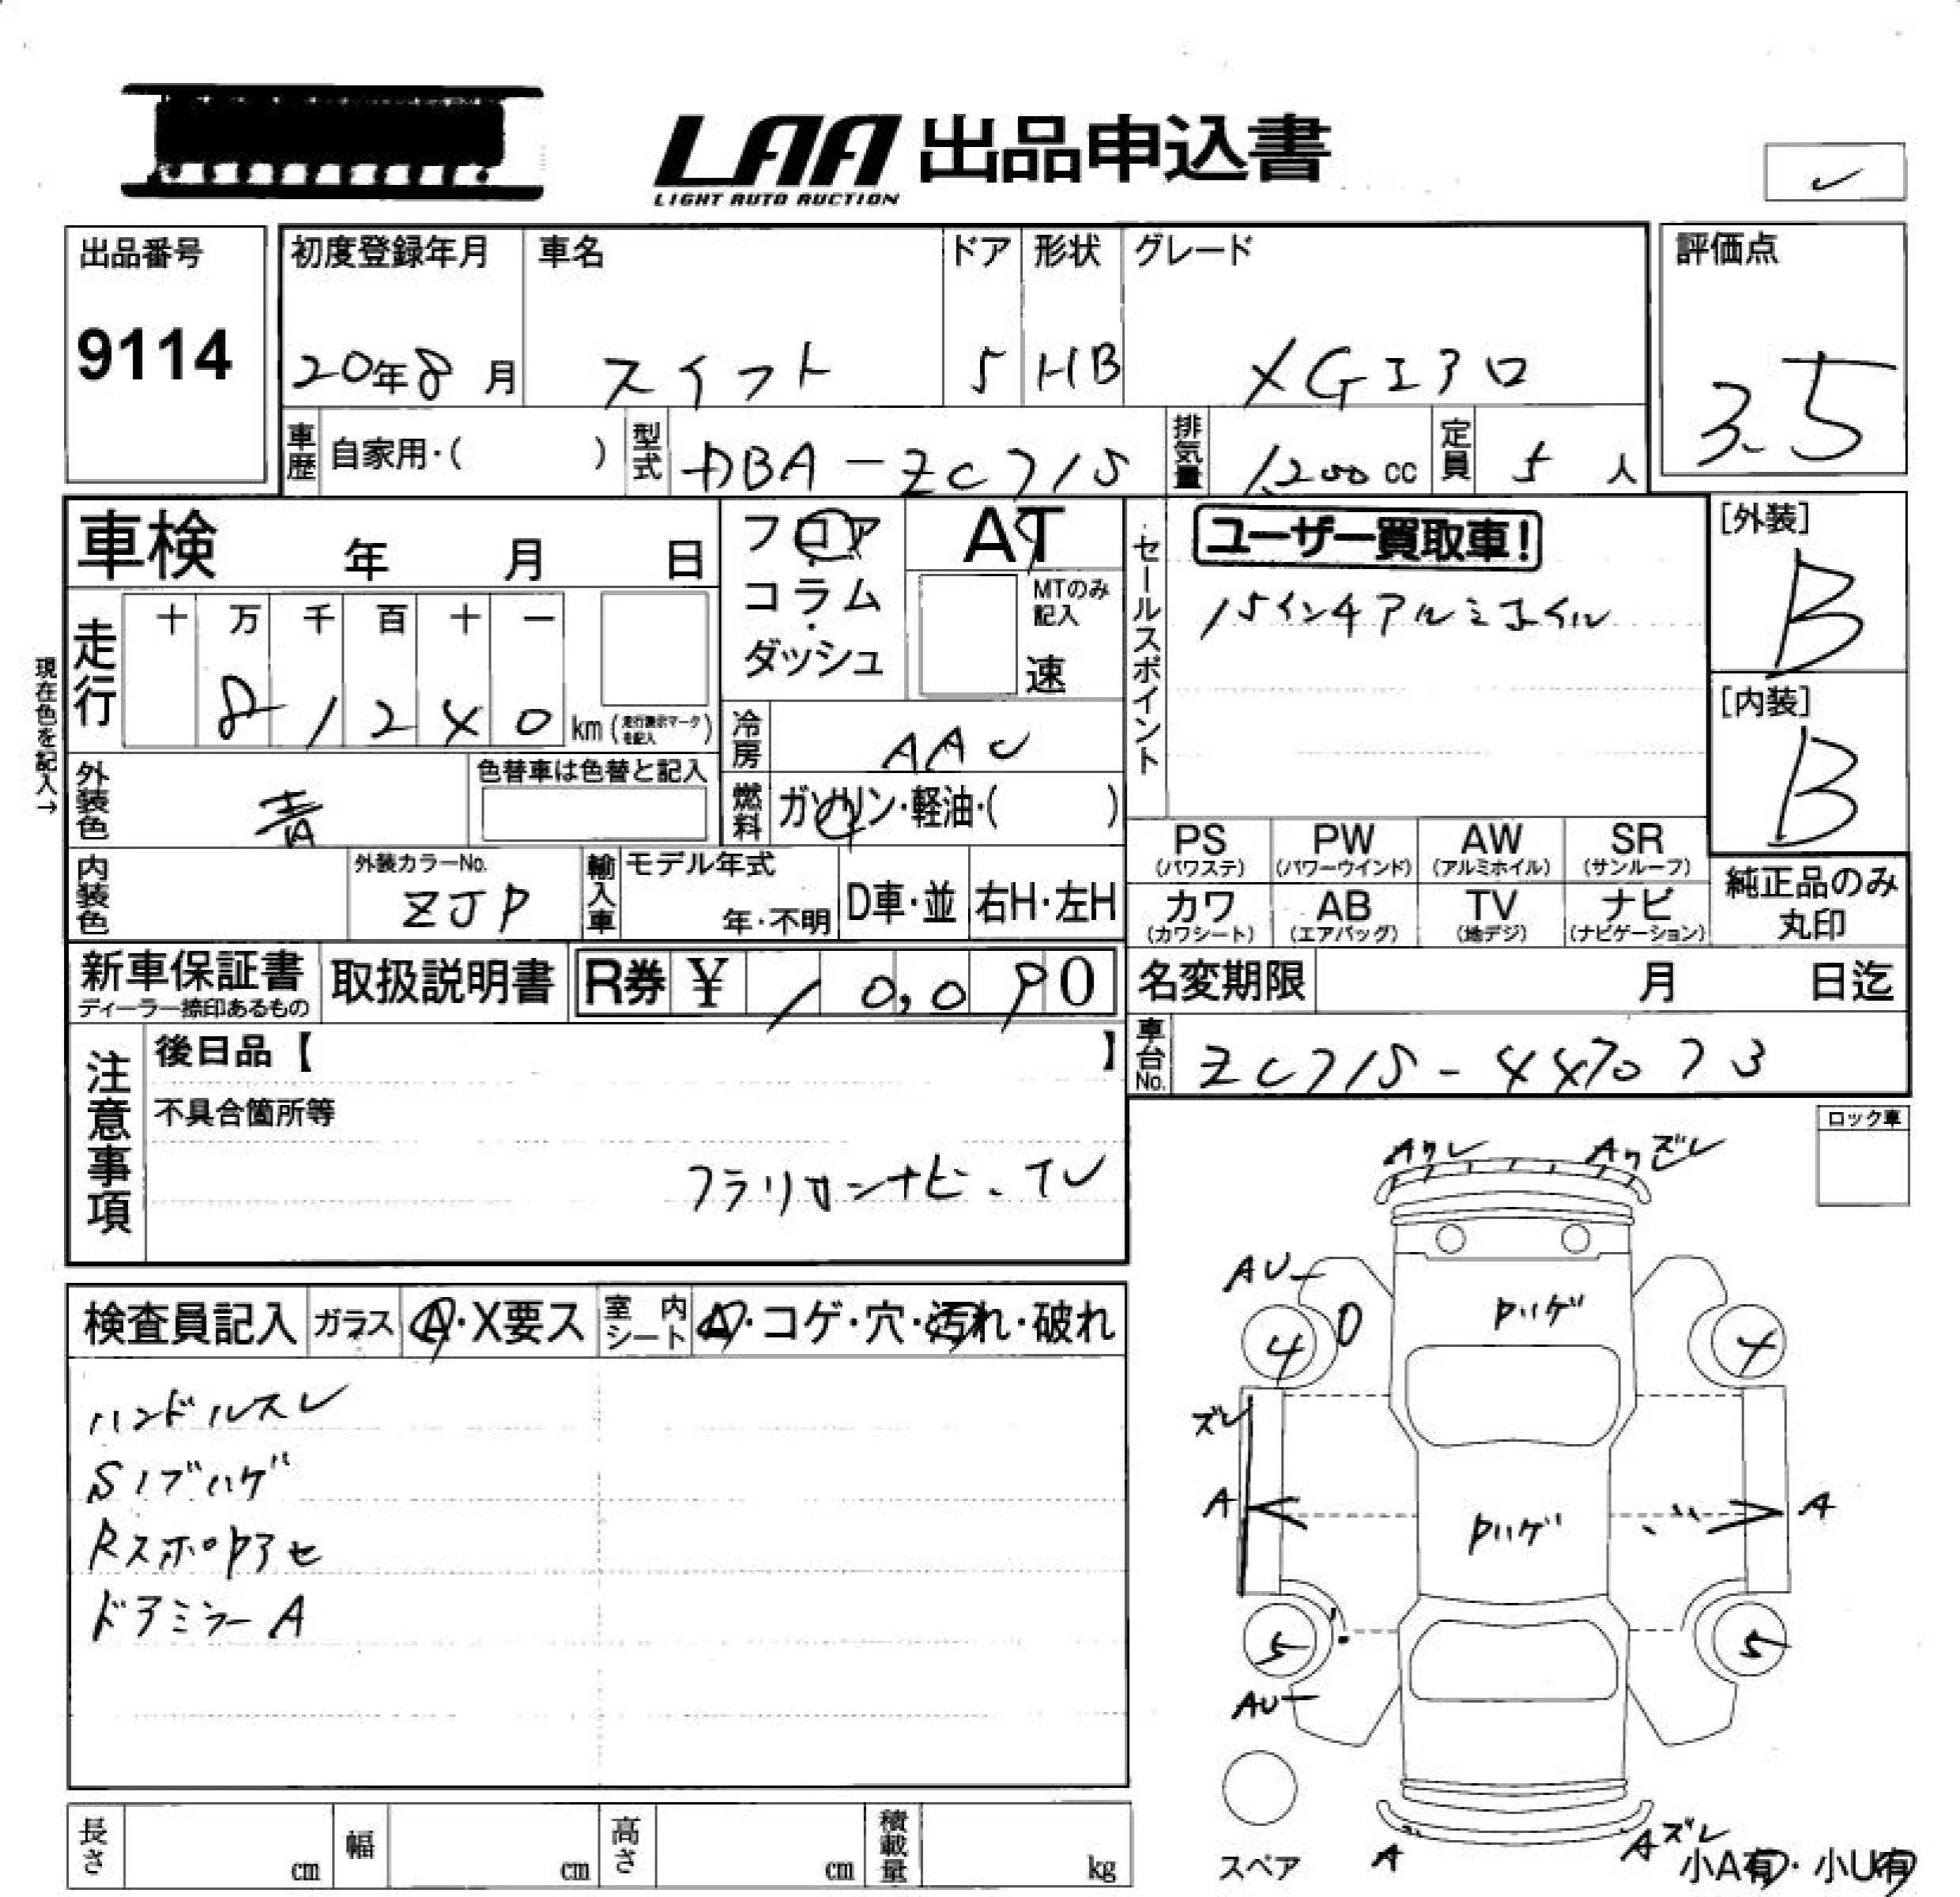 LAA 出品申込書
LIGHT AUTO AUCTION
出品番号
9114
初度登録年月
20年8月
車名
スイフト
ドア
5
形状
HB
グレード
XGエアロ
評価点
3.5
車歴
自家用・( )
型式
DBA-ZC71S
排気量
1,200cc
定員
5人
車検 年 月 日
フロア・コラム・ダッシュ
AT
MTのみ記入
速
セールスポイント
ユーザー買取車!
15インチアルミホイル
[外装]
B
[内装]
B
現在色を記入→
走行
十 万 千 百 十 一
8 1 2 4 0 km (走行表示マークを記入)
冷房
AAC
外装色
青
色替車は色替と記入
燃料
ガソリン・軽油・( )
PS (パワステ)
PW (パワーウインド)
AW (アルミホイル)
SR (サンルーフ)
カワ (カワシート)
AB (エアバッグ)
TV (地デジ)
ナビ (ナビゲーション)
純正品のみ丸印
内装色
外装カラーNo.
ZJP
輸入車
モデル年式
年・不明
D車・並
右H・左H
新車保証書
ディーラー捺印あるもの
取扱説明書
R券 ¥ 10,090
名変期限 月 日迄
車台No.
ZC71S-447073
注意事項
後日品【 】
不具合箇所等
ナビ、TV
ロック車
検査員記入
ガラス
A・X要ス
室内シート
A・コゲ・穴・汚れ・破れ
ハンドルスレ
Sノブハゲ
ドアミラーA
Aワレ
Aワズレ
AU
4
4
Pハゲ
ズレ
A
A
Pハゲ
5
5
AU
A
Aズレ
スペア
小A有・小U有
長さ cm
幅 cm
高さ cm
積載量 kg